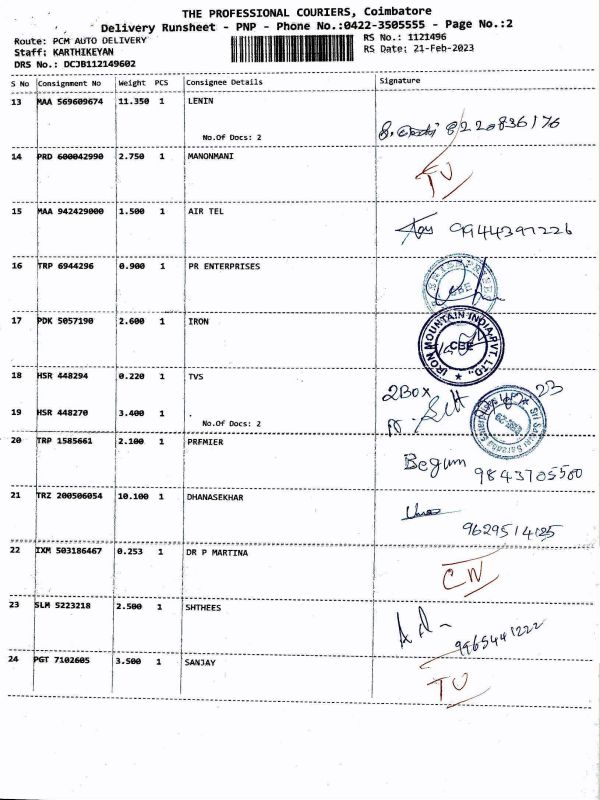 THE PROFESSIONAL COURIERS, Coimbatore
Delivery Runsheet - PNP - Phone No.:0422-3505555 - Page No.:2
Route: PCM AUTO DELIVERY
Staff: KARTHIKEYAN
DRS No.: DCJB112149602
RS No.: 1121496
RS Date: 21-Feb-2023
S No Consignment No Weight PCS Consignee Details Signature
13 MAA 569609674 11.350 1 LENIN
No.Of Docs: 2
8220836176
14 PRD 600042990 2.750 1 MANONMANI
TU
15 MAA 942429000 1.500 1 AIR TEL
9944397226
16 TRP 6944296 0.900 1 PR ENTERPRISES
CBE
17 PDK 5057190 2.600 1 IRON
IRON MOUNTAIN INDIA PVT. LTD.,
CBE
18 HSR 448294 0.220 1 TVS
2Box
23
19 HSR 448270 3.400 1
No.Of Docs: 2
20 TRP 1585661 2.100 1 PREMIER
Begum
9843705500
21 TRZ 200506054 10.100 1 DHANASEKHAR
22 IXM 503186467 0.253 1 DR P MARTINA
CN
23 SLM 5223218 2.500 1 SHTHEES
9965441222
24 PGT 7102605 3.500 1 SANJAY
TU